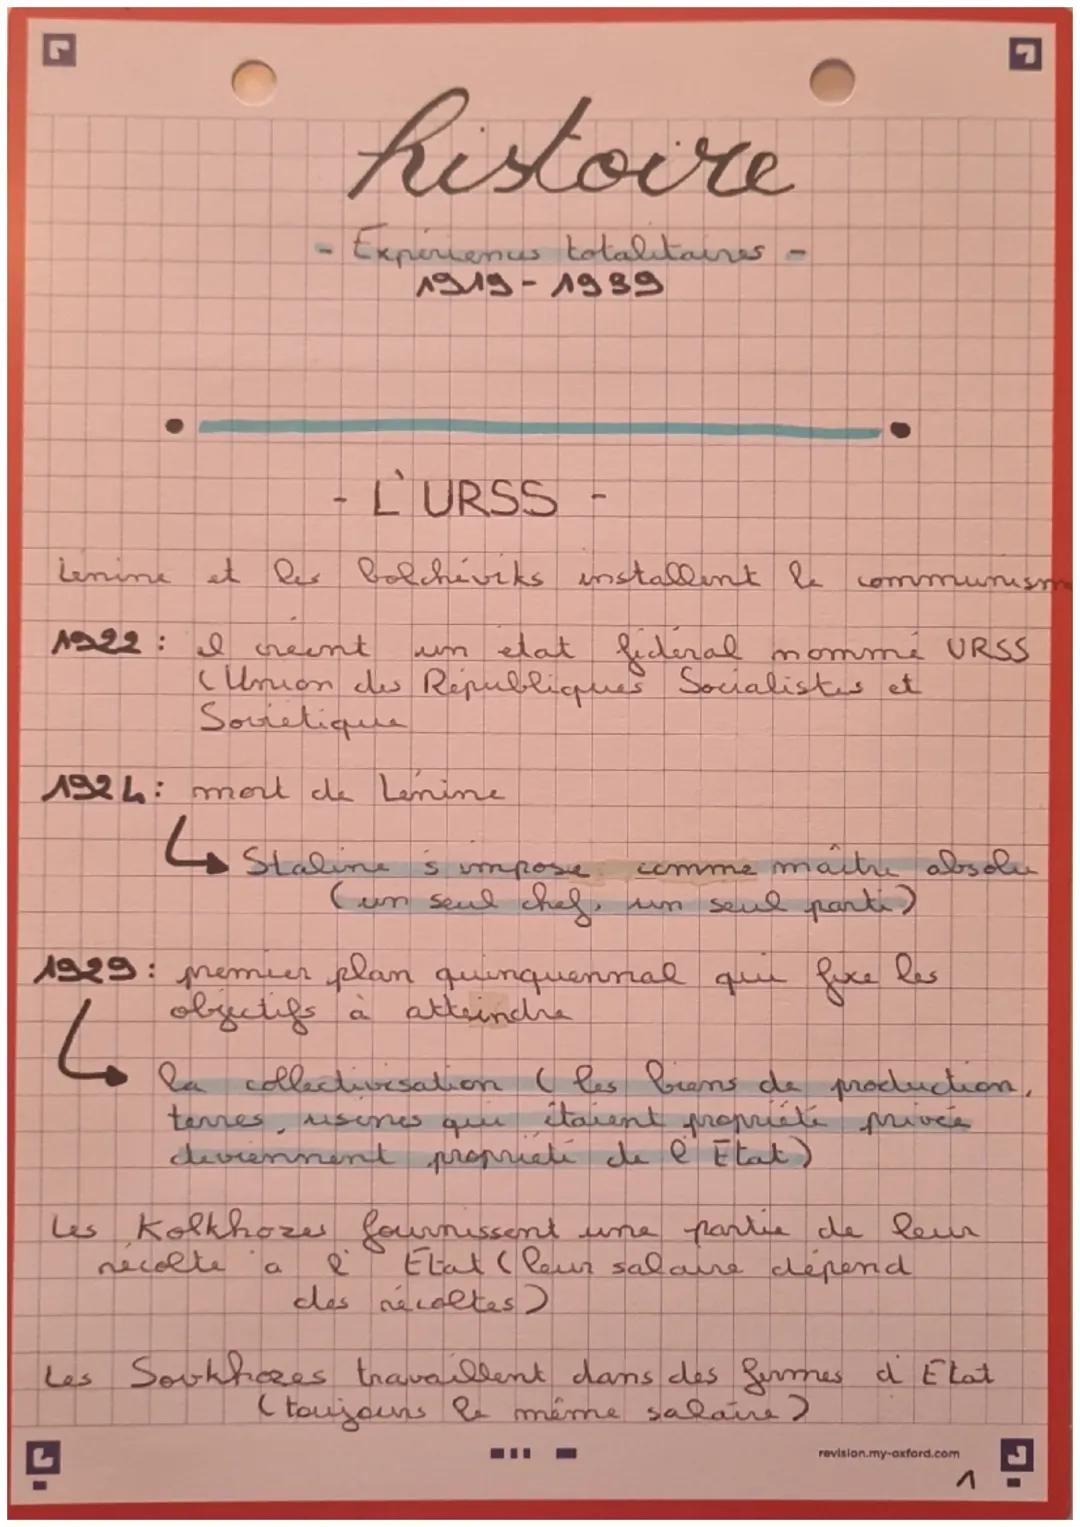 histoire
- Expériences totalitaires -
1919 - 1939
- L'URSS -
Lénine et les bolchéviks installent le communism
1922 : il créent un état fédéral nommé URSS
(Union des Républiques Socialistes et
Soviétique
1924 : mort de Lénine
Staline s'impose comme maître absolu
(un seul chef, un seul parti)
1929 : premier plan quinquennal qui fixe les
objectifs à atteindre
la collectivisation (les biens de production,
terres, usines qui étaient propriété privée
deviennent propriété de l'État)
Les Kolkhozes fournissent une partie de leur
récolte a l'État (leur salaire dépend
des récoltes)
Les Sovkhozes travaillent dans des fermes d'État
(toujours le même salaire)
revision.my-oxford.com
1